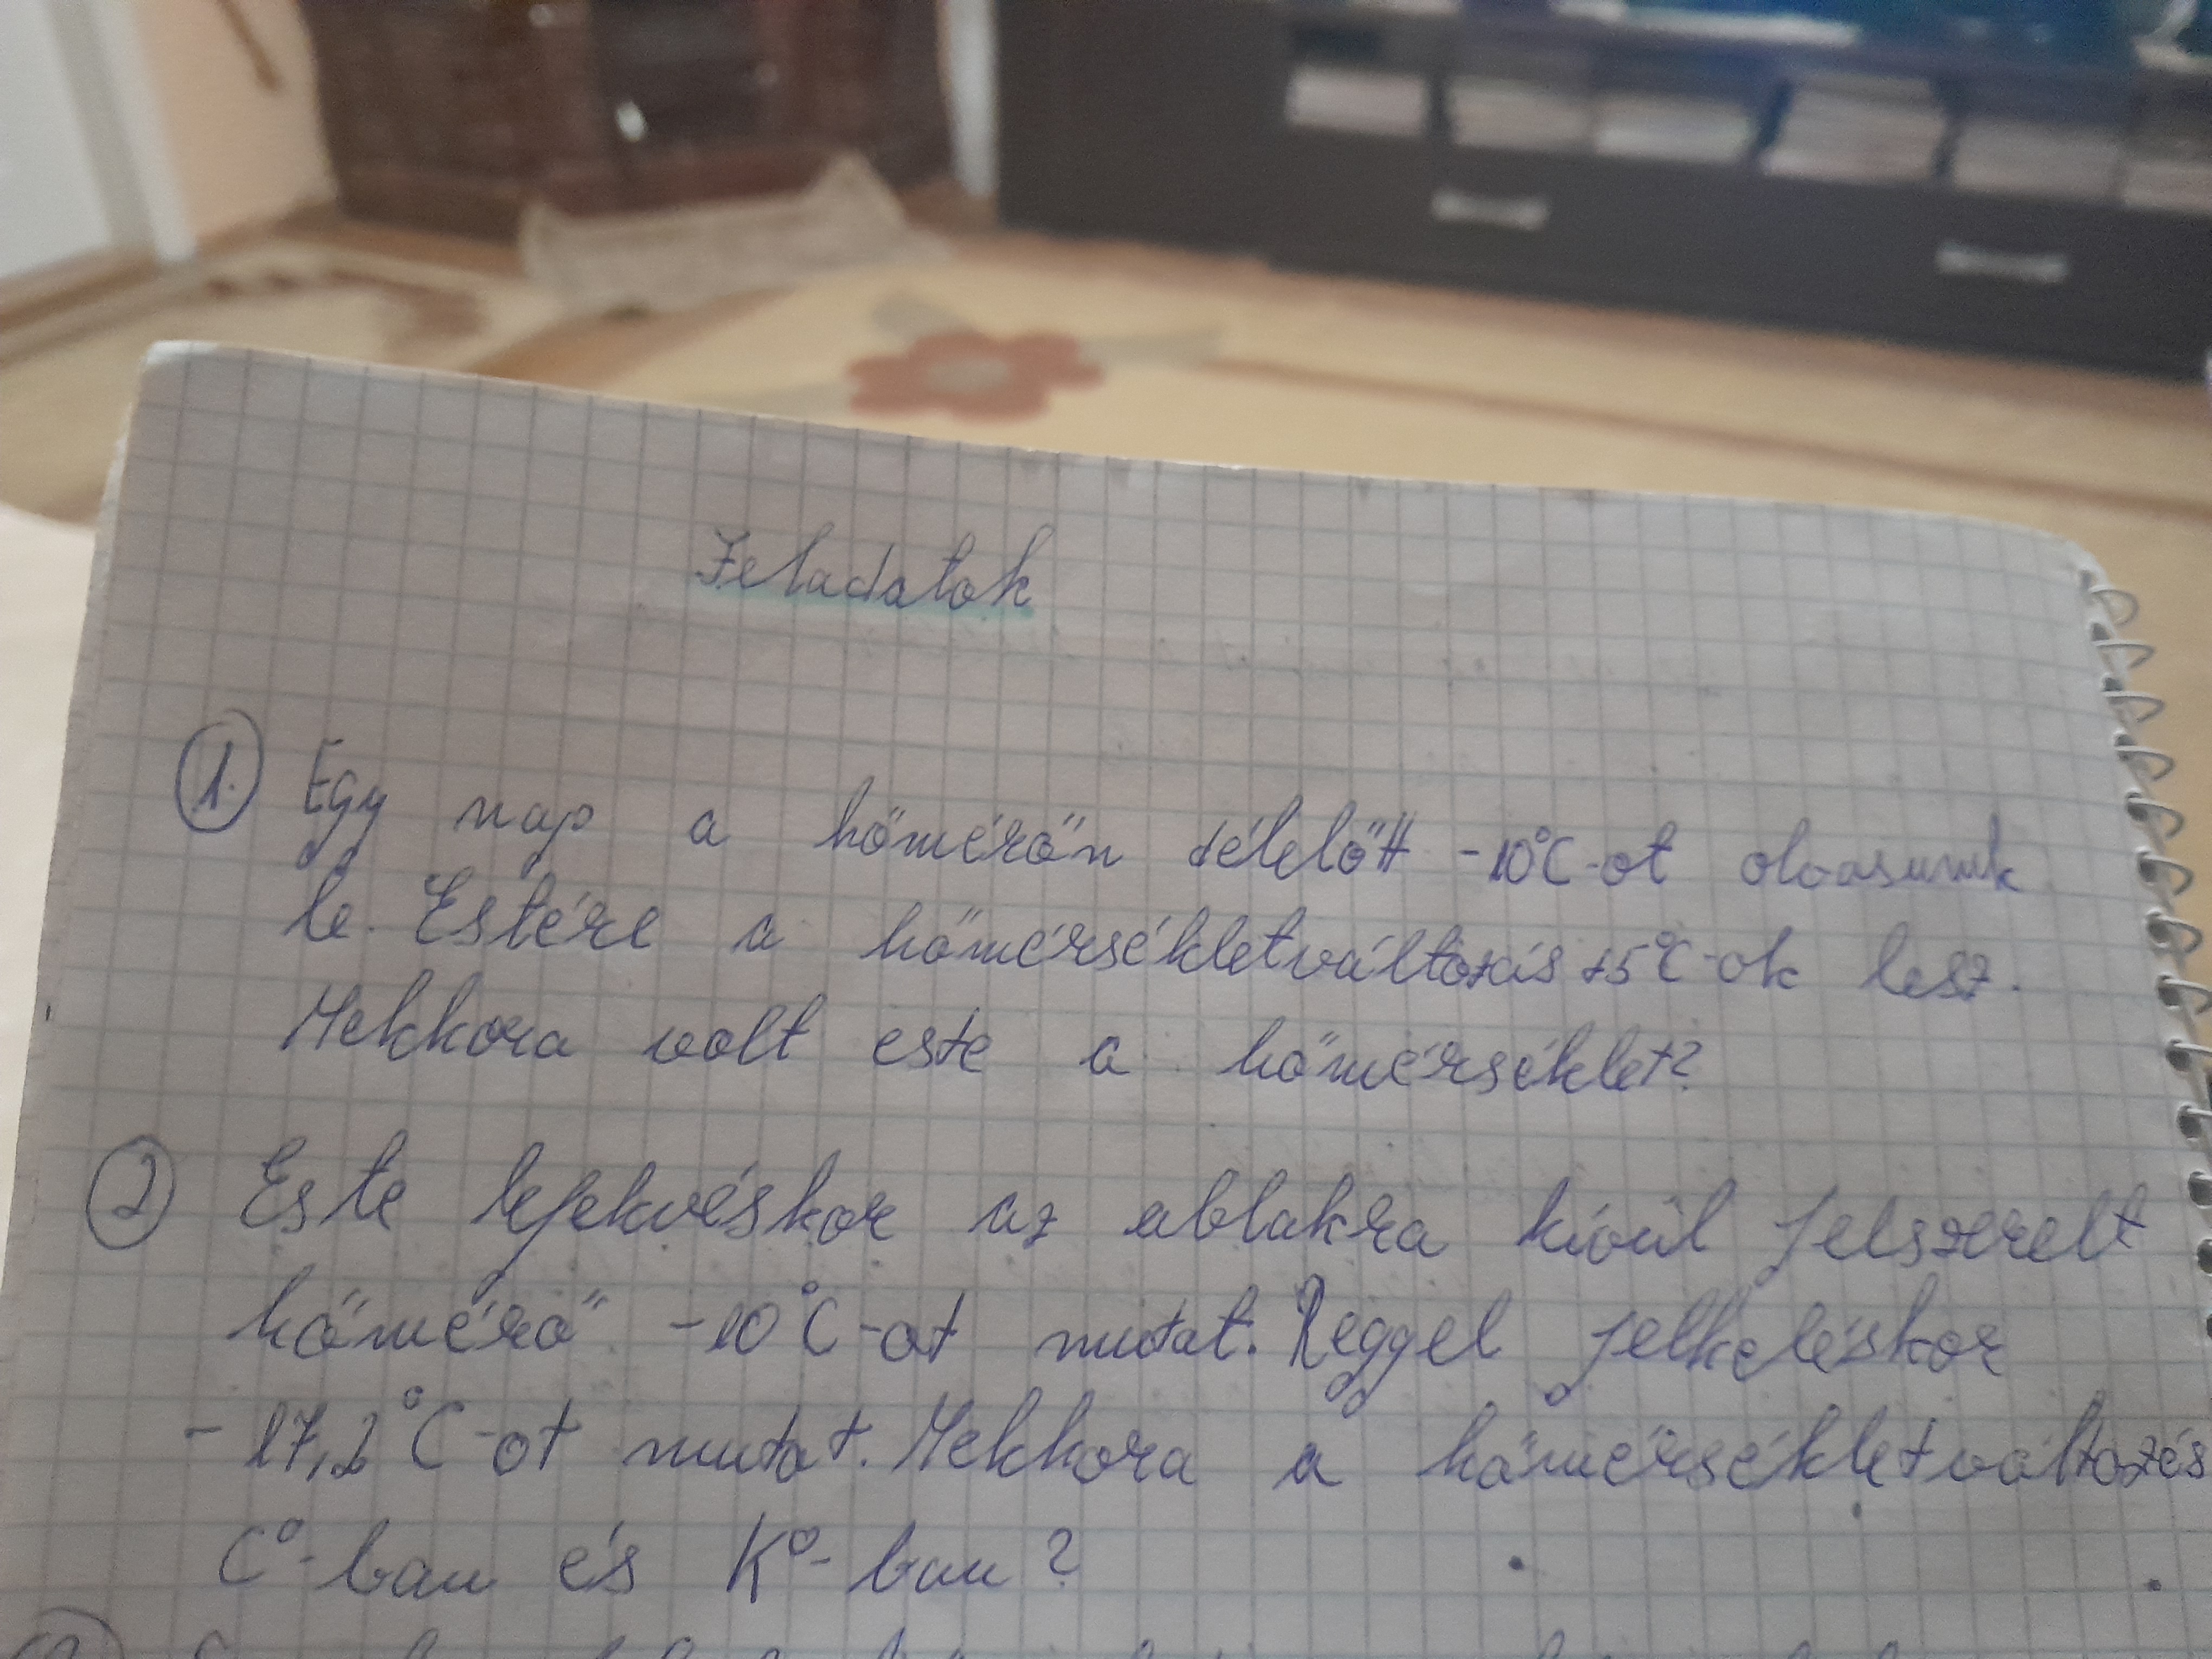 Feladatok
1. Egy nap a hőmérőn délelőtt -10°C-ot olvasunk
le. Estére a hőmérsékletváltozás +5°C-ok lesz.
Mekkora volt este a hőmérséklet?
2 Este lefekvéskor az ablakra kívül felszerelt
hőmérő -10°C-ot mutat. Reggel felkeléskor
-17,2°C-ot mutat. Mekkora a hőmérsékletváltozás
C°-ban és K°-ban?